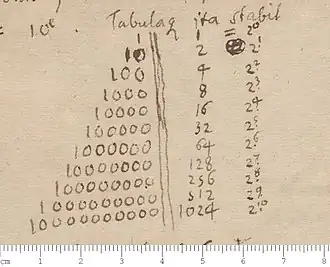 = 10e. Tabula ita stabit
1 1 = 2^0
10 2 2^1
100 4 2^2
1000 8 2^3
10000 16 2^4
100000 32 2^5
1000000 64 2^6
10000000 128 2^7
100000000 256 2^8
1000000000 512 2^9
10000000000 1024 2^10
cm 1 2 3 4 5 6 7 8